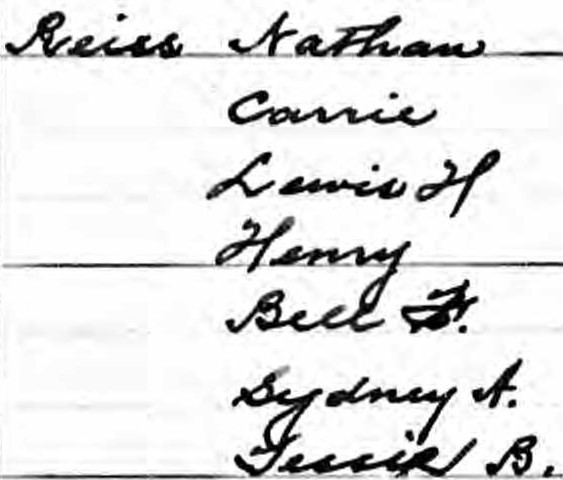 Reiss Nathan
Carrie
Lewis H
Henry
Bell F.
Sydney A.
Tessie B.